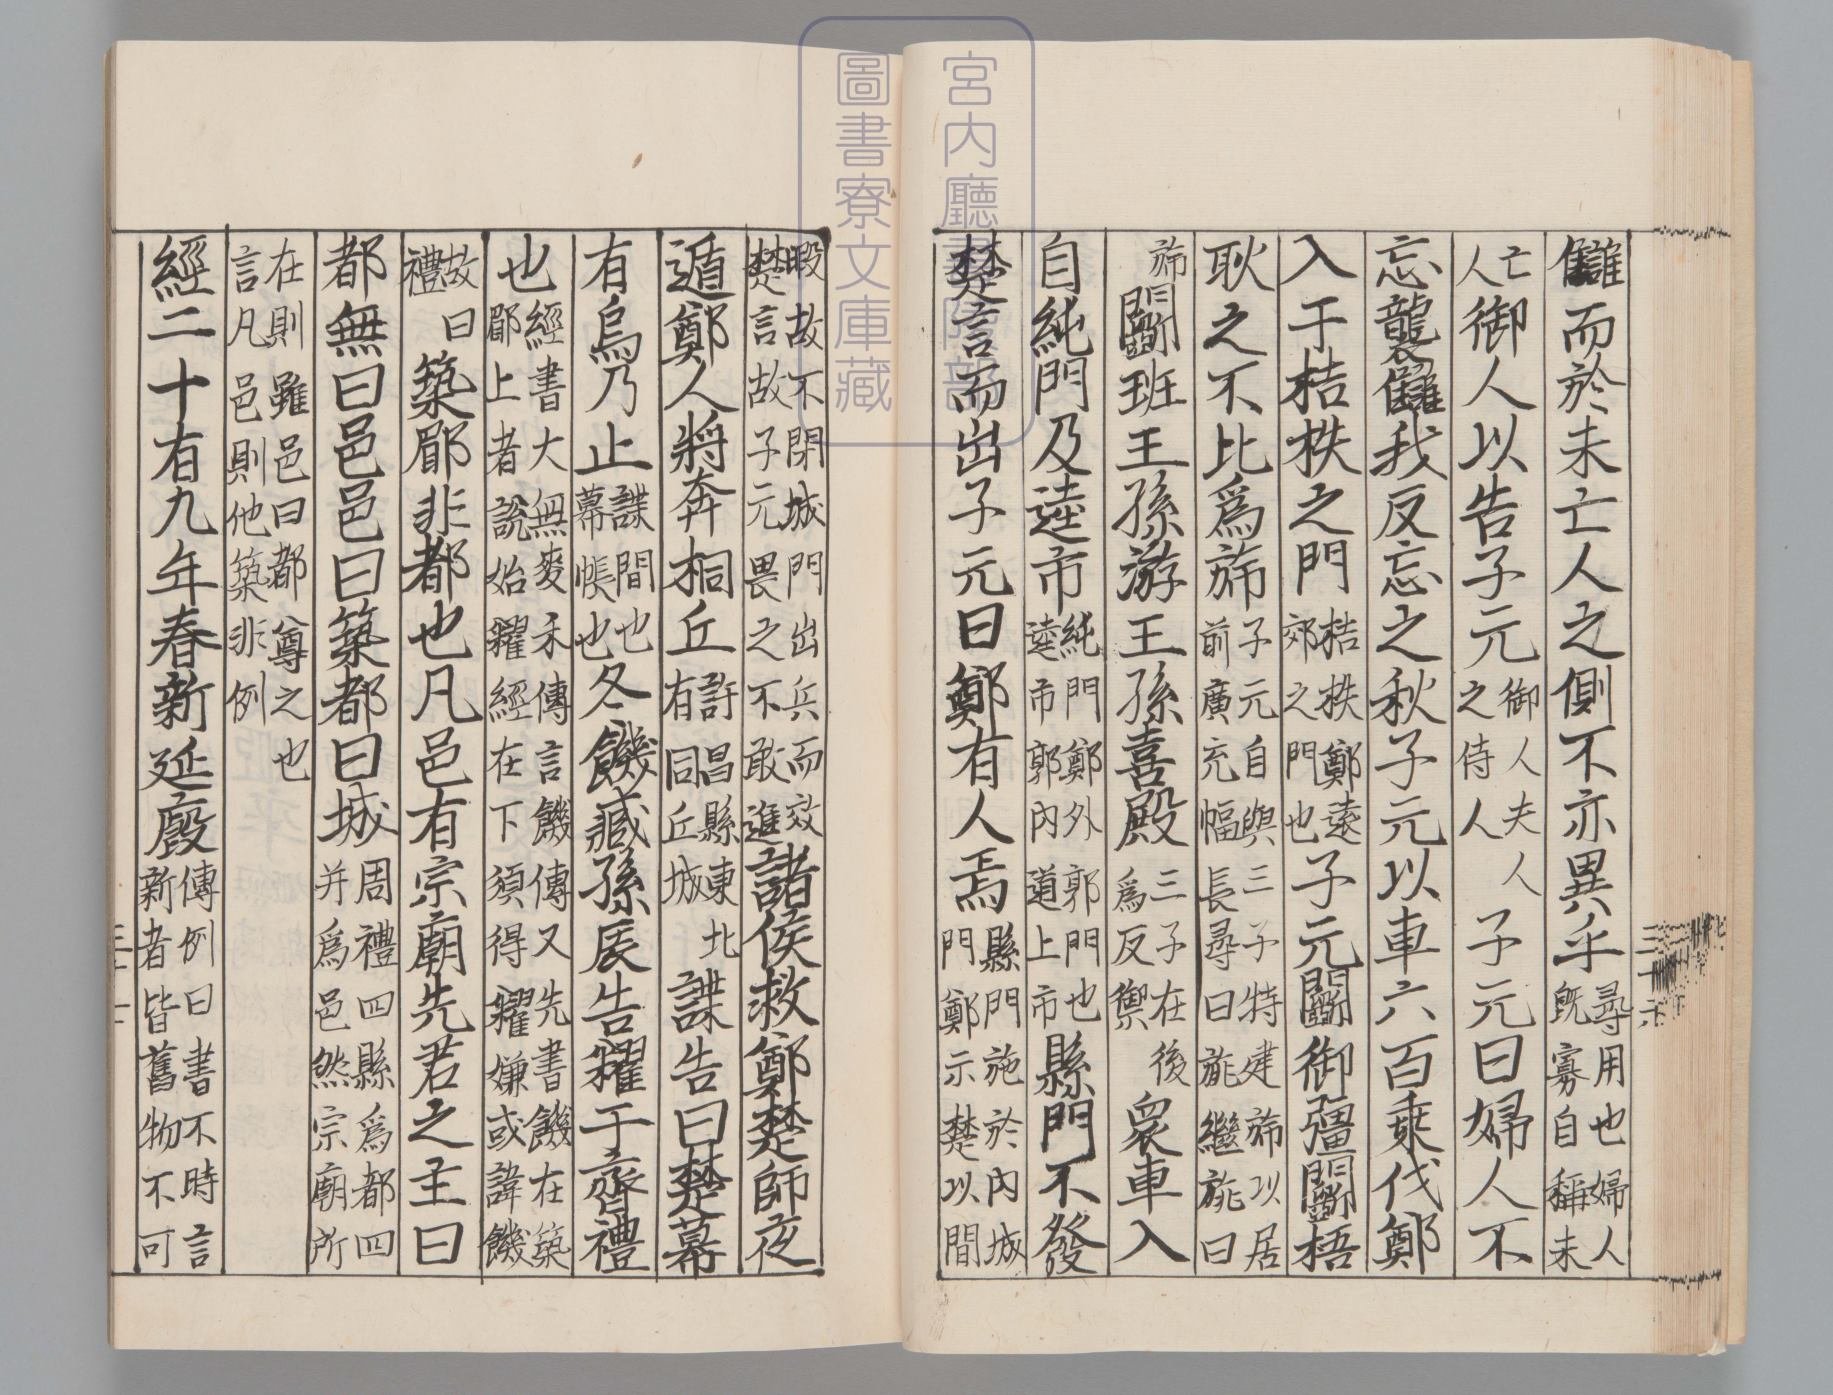 讎而於未亡人之側不亦異乎尋用也婦人既寡自稱未
亡人御人以告子元御人夫人之侍人子元曰婦人不
忘襲讎我反忘之秋子元以車六百乘伐鄭
入于桔柣之門桔柣鄭遠郊之門也子元鬬御彊鬬梧
耿之不比爲斾子元自與三子特建斾以居前廣充幅長尋曰旐繼旐曰
斾鬬班王孫游王孫喜殿三子在後爲反禦衆車入
自純門及逵市純門鄭外郭門也逵市郭内道上市縣門不發
楚言而出子元曰鄭有人焉縣門施於内城門鄭示楚以間
暇故不閉城門出兵而效楚言故子元畏之不敢進諸侯救鄭楚師夜
遁鄭人將奔桐丘許昌縣東北有同丘城諜告曰楚幕
有烏乃止諜間也幕帳也冬饑臧孫辰告糴于齊禮
也經書大無麥禾傳言饑傳又先書饑在築郿上者説始糴經在下須得糴嫌或諱饑
故曰禮築郿非都也凡邑有宗廟先君之主曰
都無曰邑邑曰築都曰城周禮四縣爲都四井爲邑然宗廟所
在則雖邑曰都尊之也言凡邑則他築非例
經二十有九年春新延廏傳例曰書不時言新者皆舊物不可
宮内廳書陵部
圖書寮文庫藏